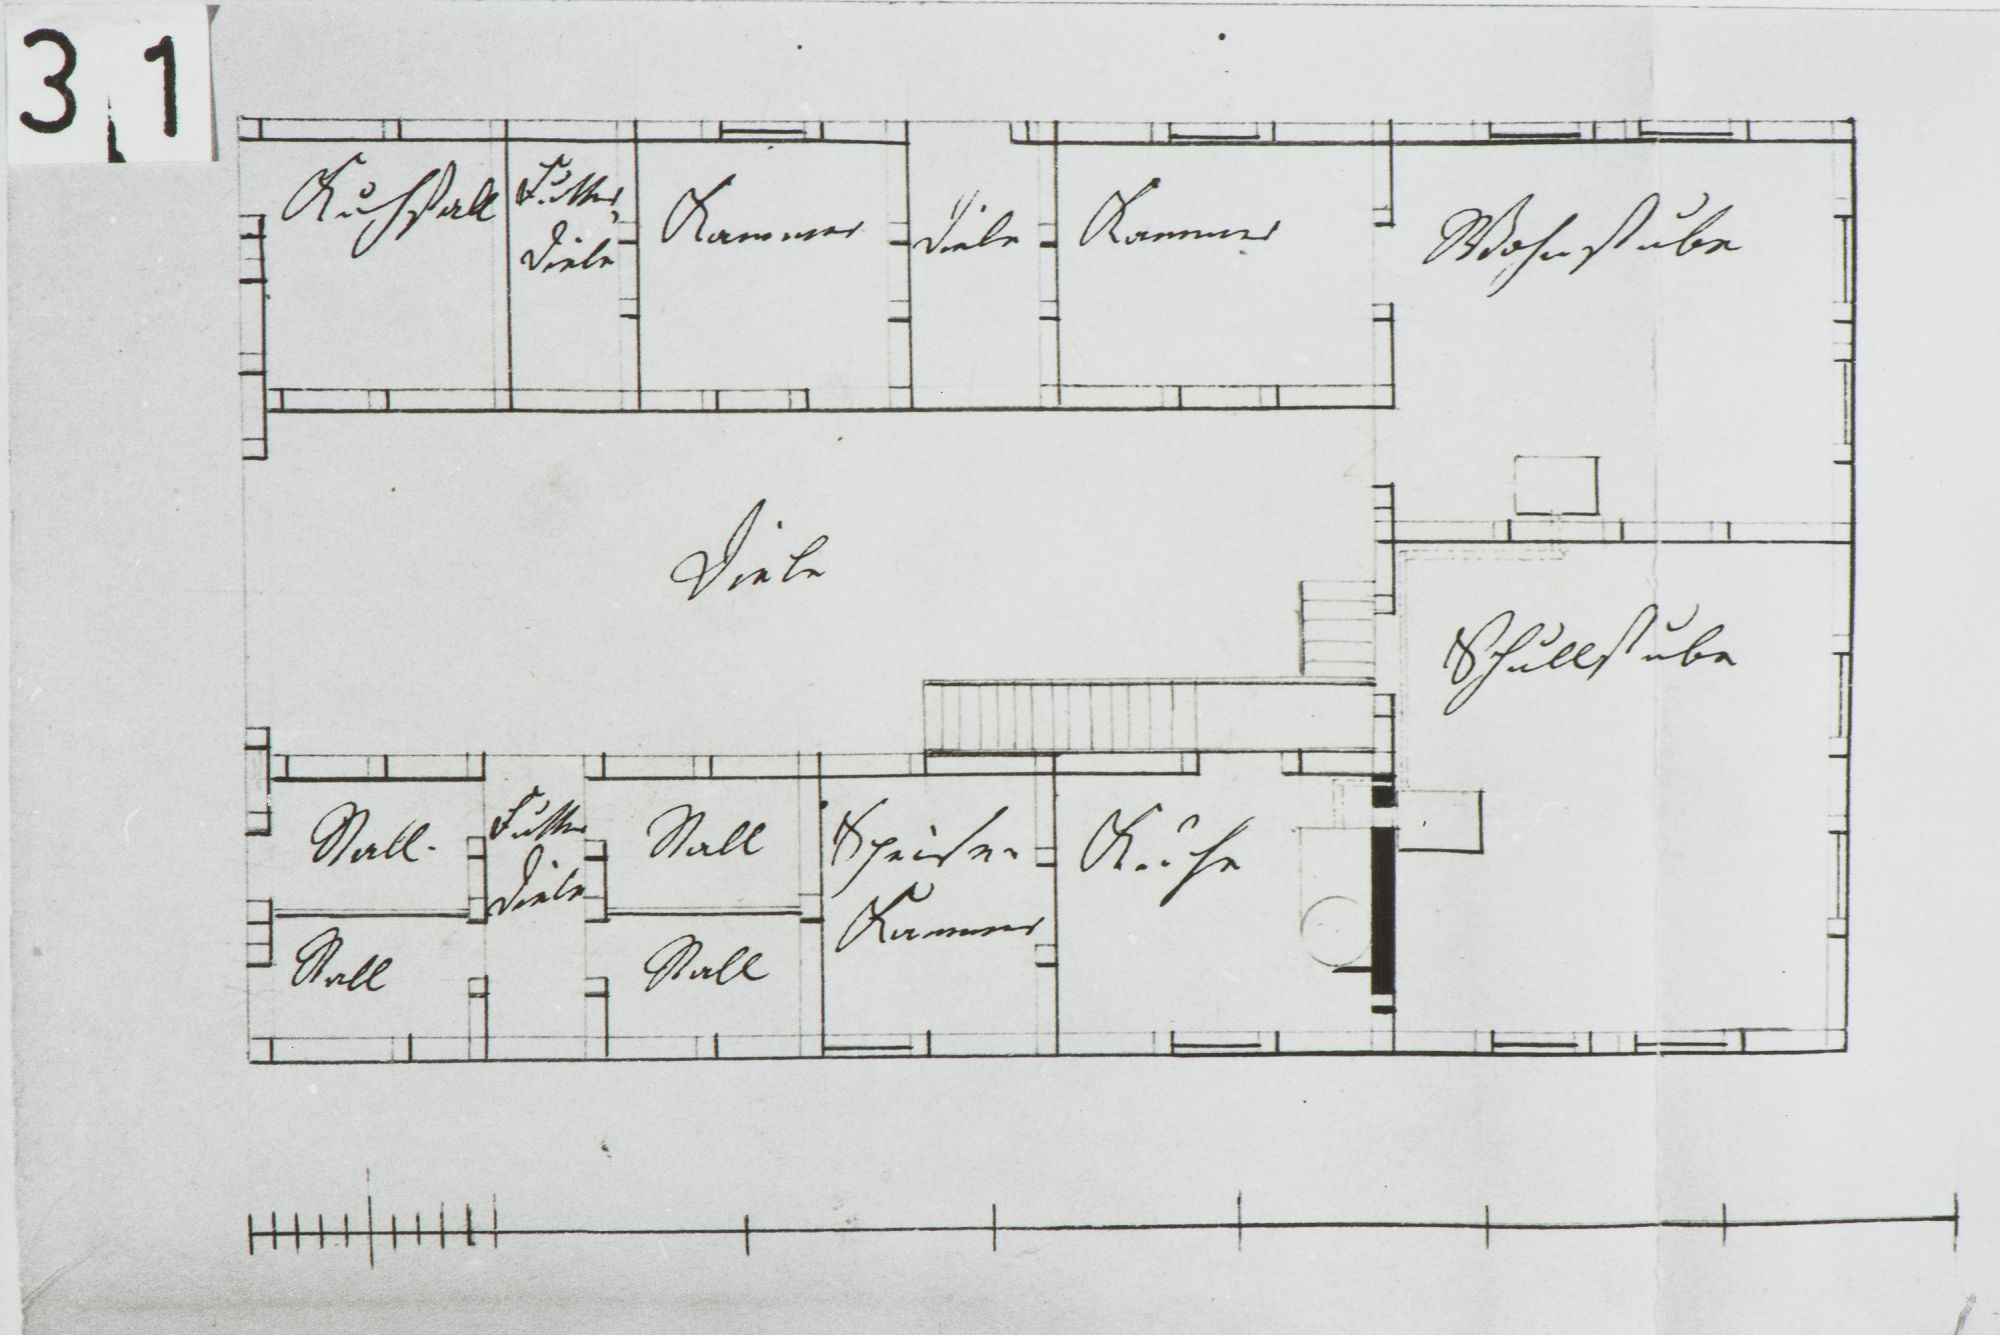 31
Kuhstall
Futter-
Diele
Kammer
Diele
Kammer
Wohnstube
Diele
Schullstube
Stall.
Futter
Diele
Stall
Speise-
Kammer
Küche
Stall
Stall